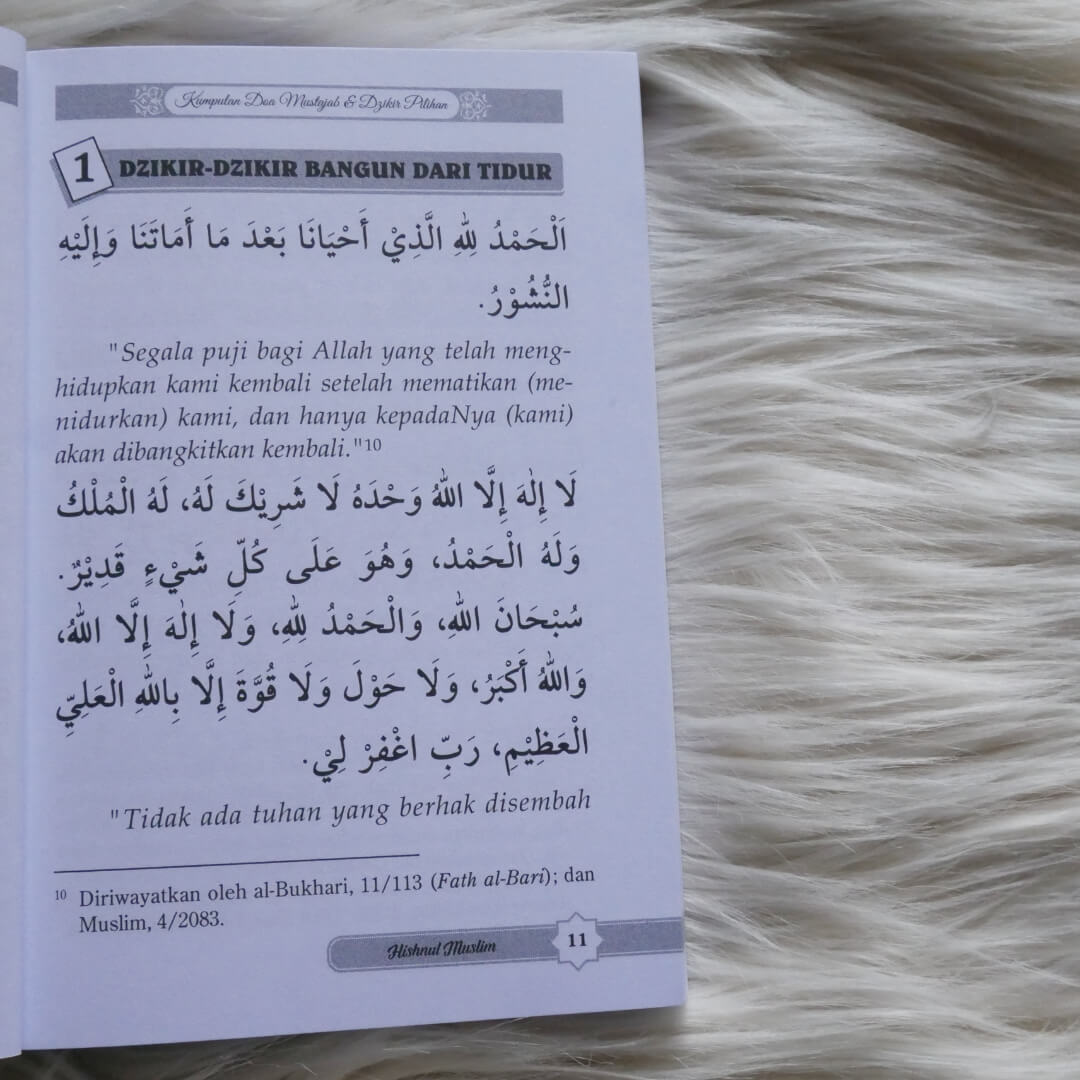 Kumpulan Doa Mustajab & Dzikir Pilihan
1 DZIKIR-DZIKIR BANGUN DARI TIDUR
اَلْحَمْدُ لِلّٰهِ الَّذِيْ أَحْيَانَا بَعْدَ مَا أَمَاتَنَا وَإِلَيْهِ
النُّشُوْرُ.
"Segala puji bagi Allah yang telah meng-
hidupkan kami kembali setelah mematikan (me-
nidurkan) kami, dan hanya kepadaNya (kami)
akan dibangkitkan kembali."10
لَا إِلٰهَ إِلَّا اللّٰهُ وَحْدَهُ لَا شَرِيْكَ لَهُ، لَهُ الْمُلْكُ
وَلَهُ الْحَمْدُ، وَهُوَ عَلَى كُلِّ شَيْءٍ قَدِيْرٌ.
سُبْحَانَ اللّٰهِ، وَالْحَمْدُ لِلّٰهِ، وَلَا إِلٰهَ إِلَّا اللّٰهُ،
وَاللّٰهُ أَكْبَرُ، وَلَا حَوْلَ وَلَا قُوَّةَ إِلَّا بِاللّٰهِ الْعَلِيِّ
الْعَظِيْمِ، رَبِّ اغْفِرْ لِيْ.
"Tidak ada tuhan yang berhak disembah
10 Diriwayatkan oleh al-Bukhari, 11/113 (Fath al-Bari); dan
Muslim, 4/2083.
Hishnul Muslim 11